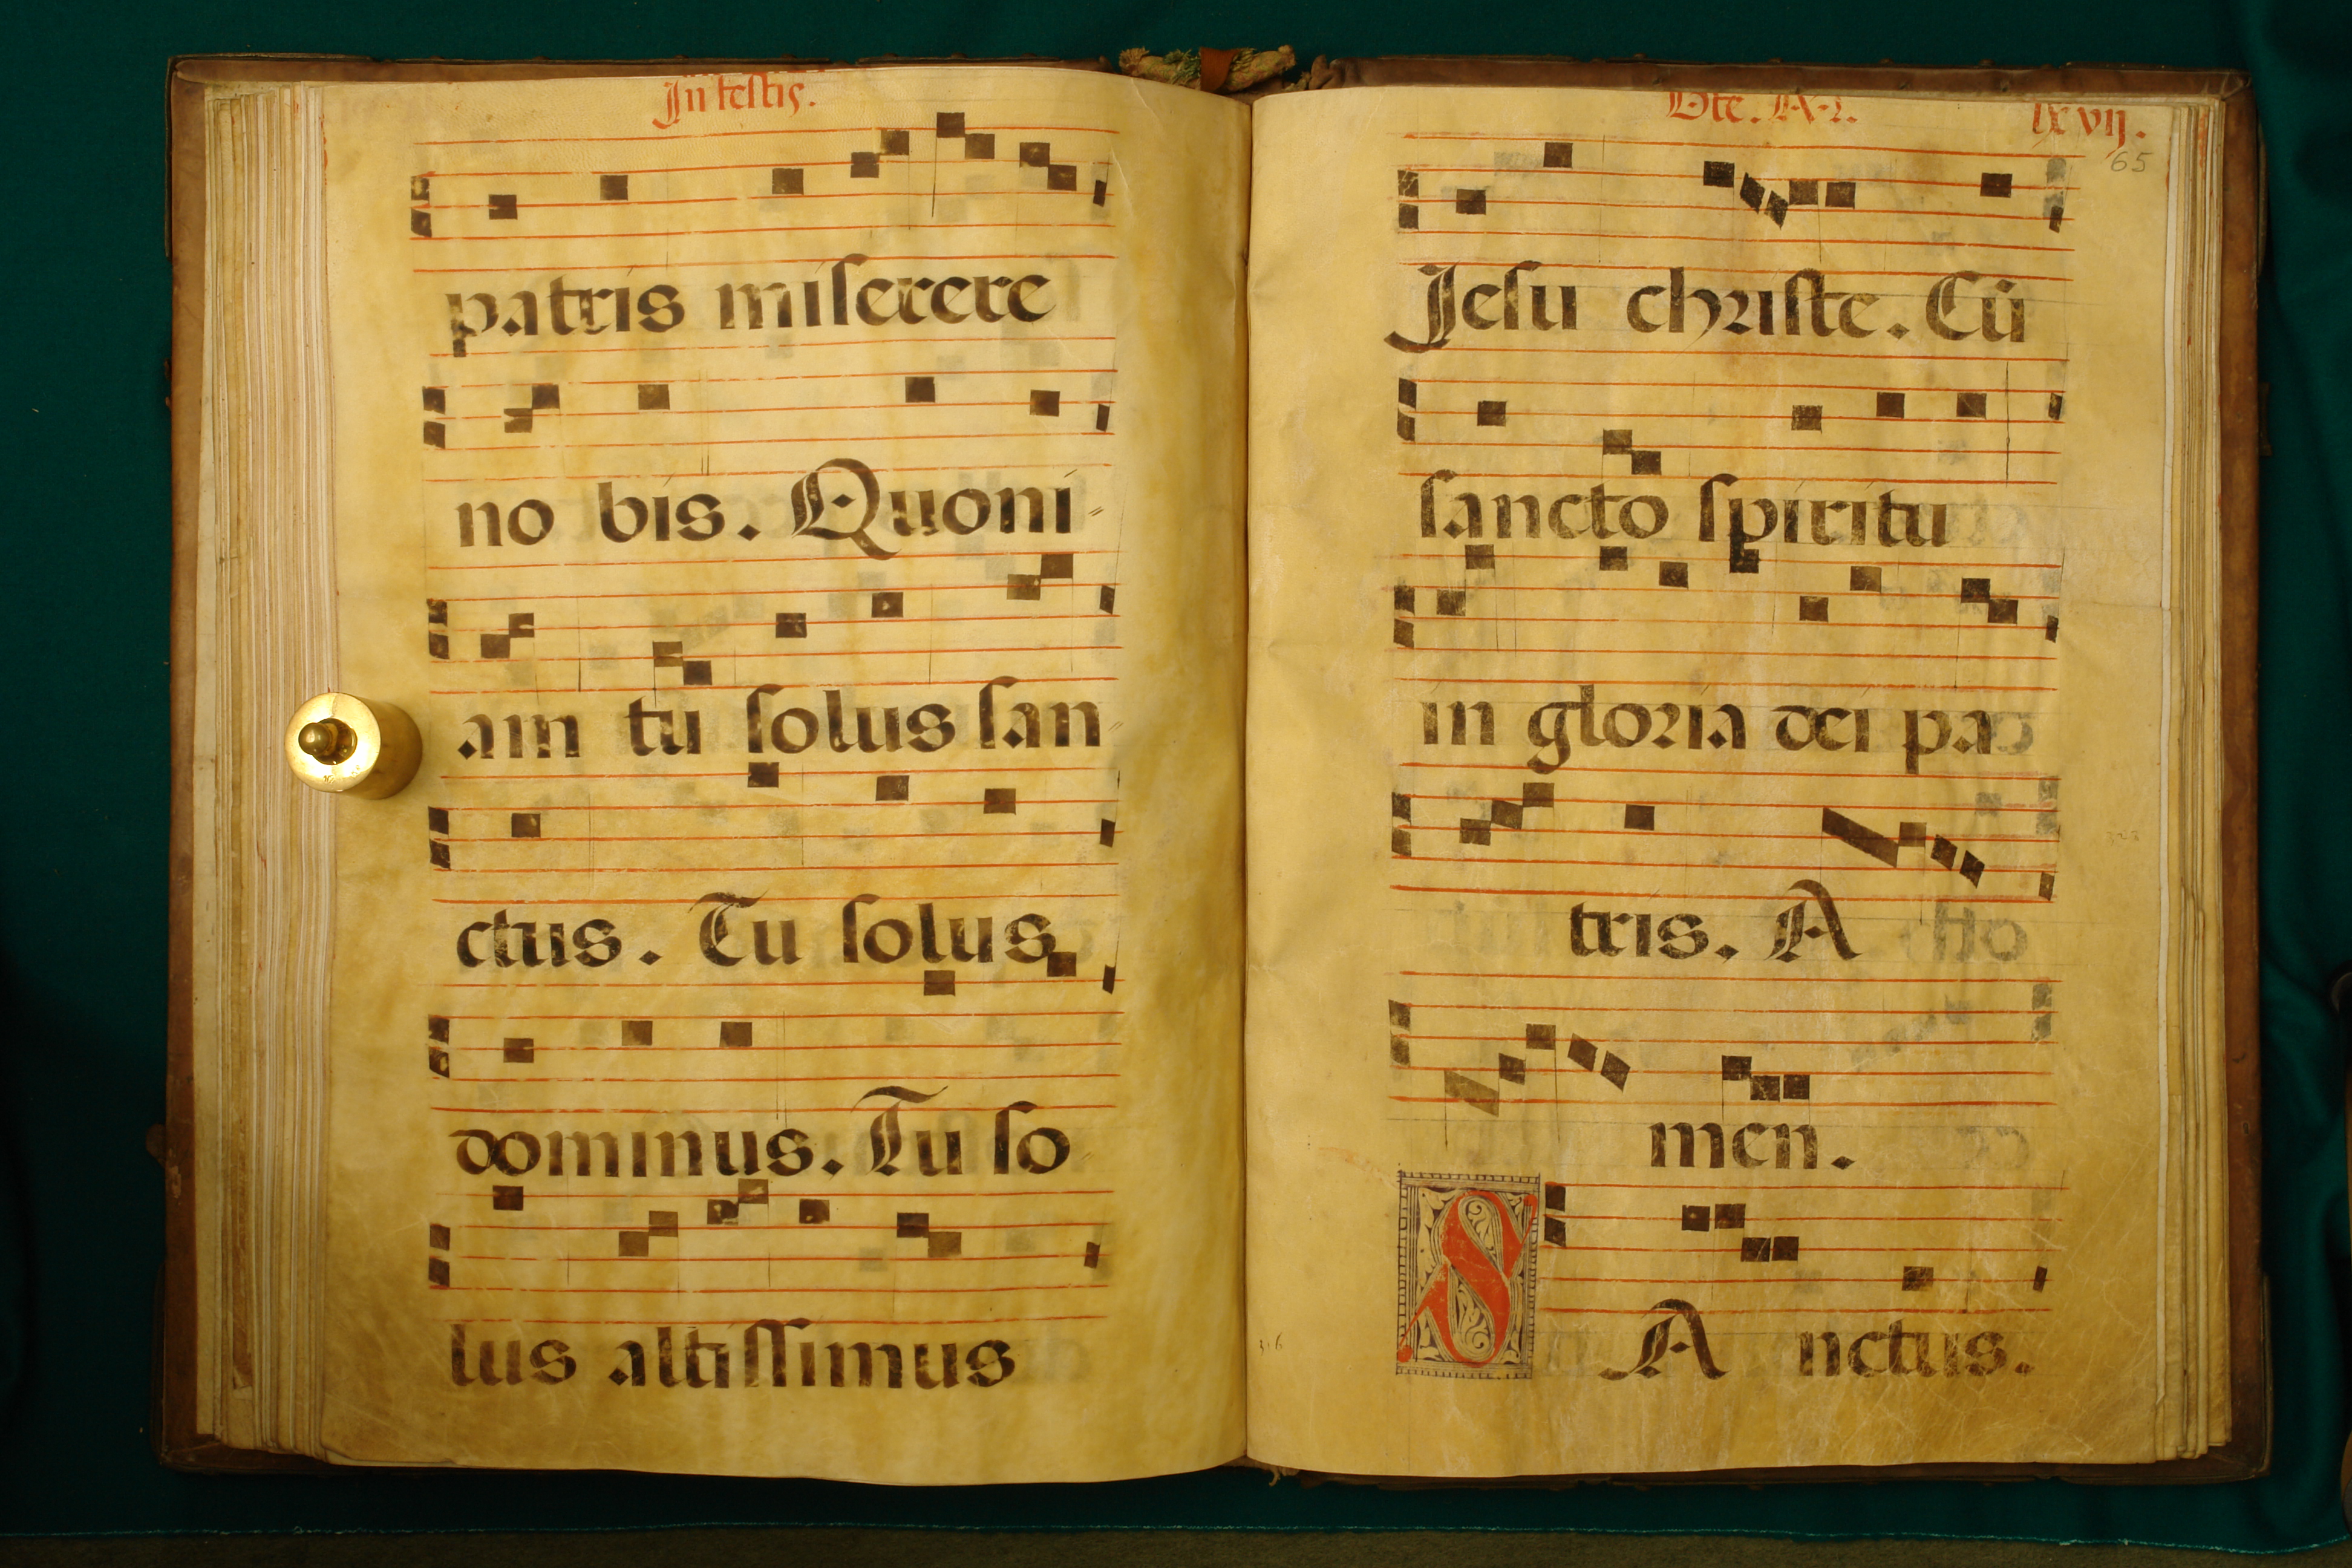 In festis.
patris miserere
no bis. Quoni
am tu solus san
ctus. Tu solus
dominus. Tu so
lus altissimus
lxvij.
65
Jesu christe. Cū
sancto spiritu
in gloria dei pa
tris. A
men.
SA nctus.
316